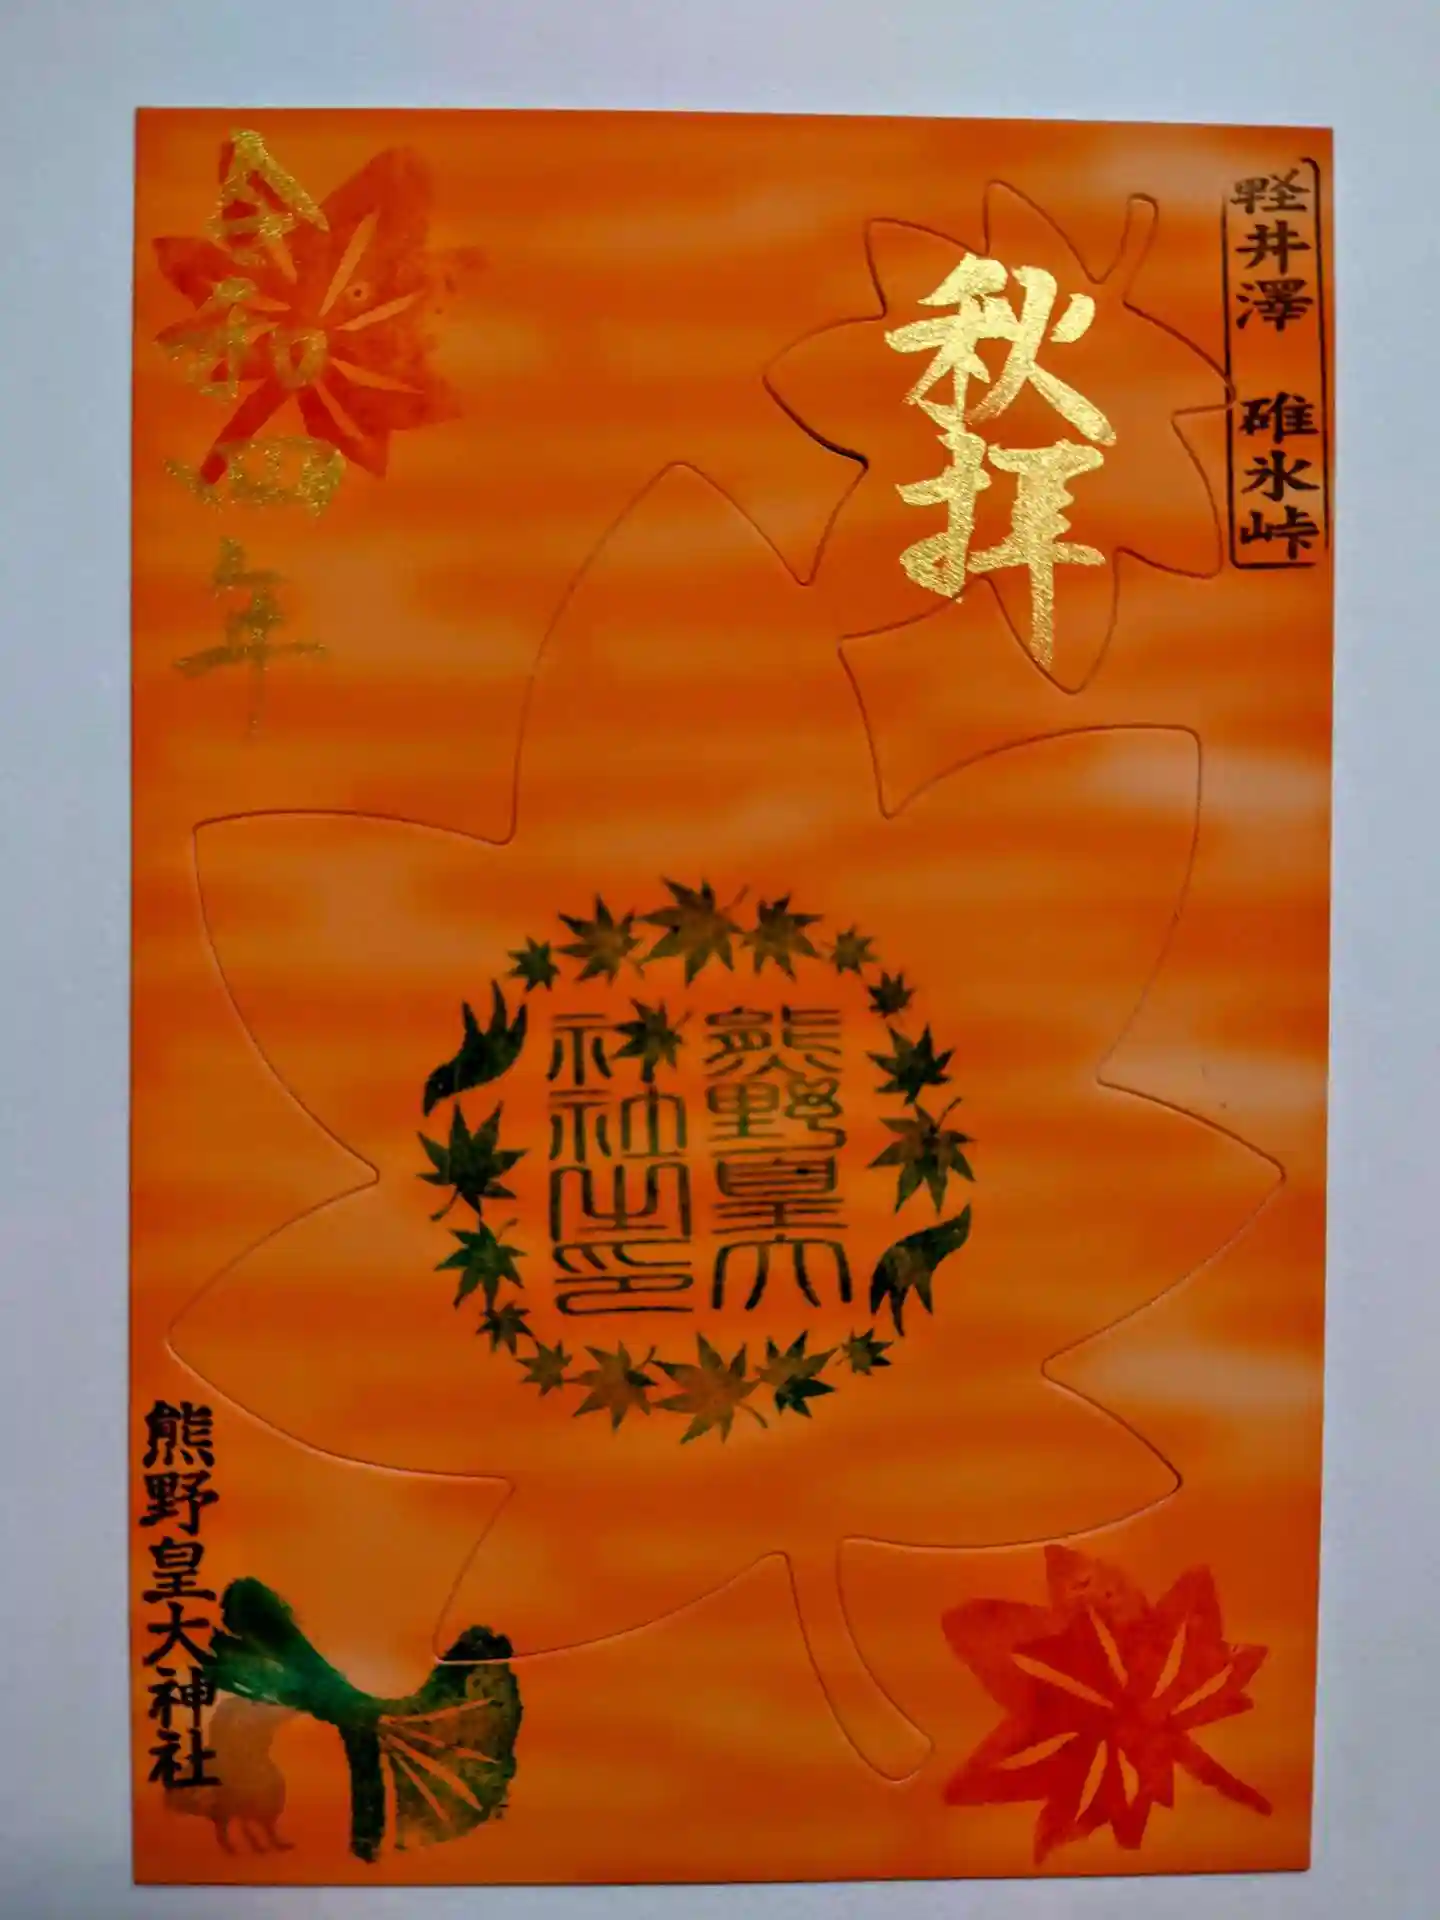 軽井澤 碓氷峠
秋拝
熊野皇大
神社之印
令和四年
熊野皇大神社